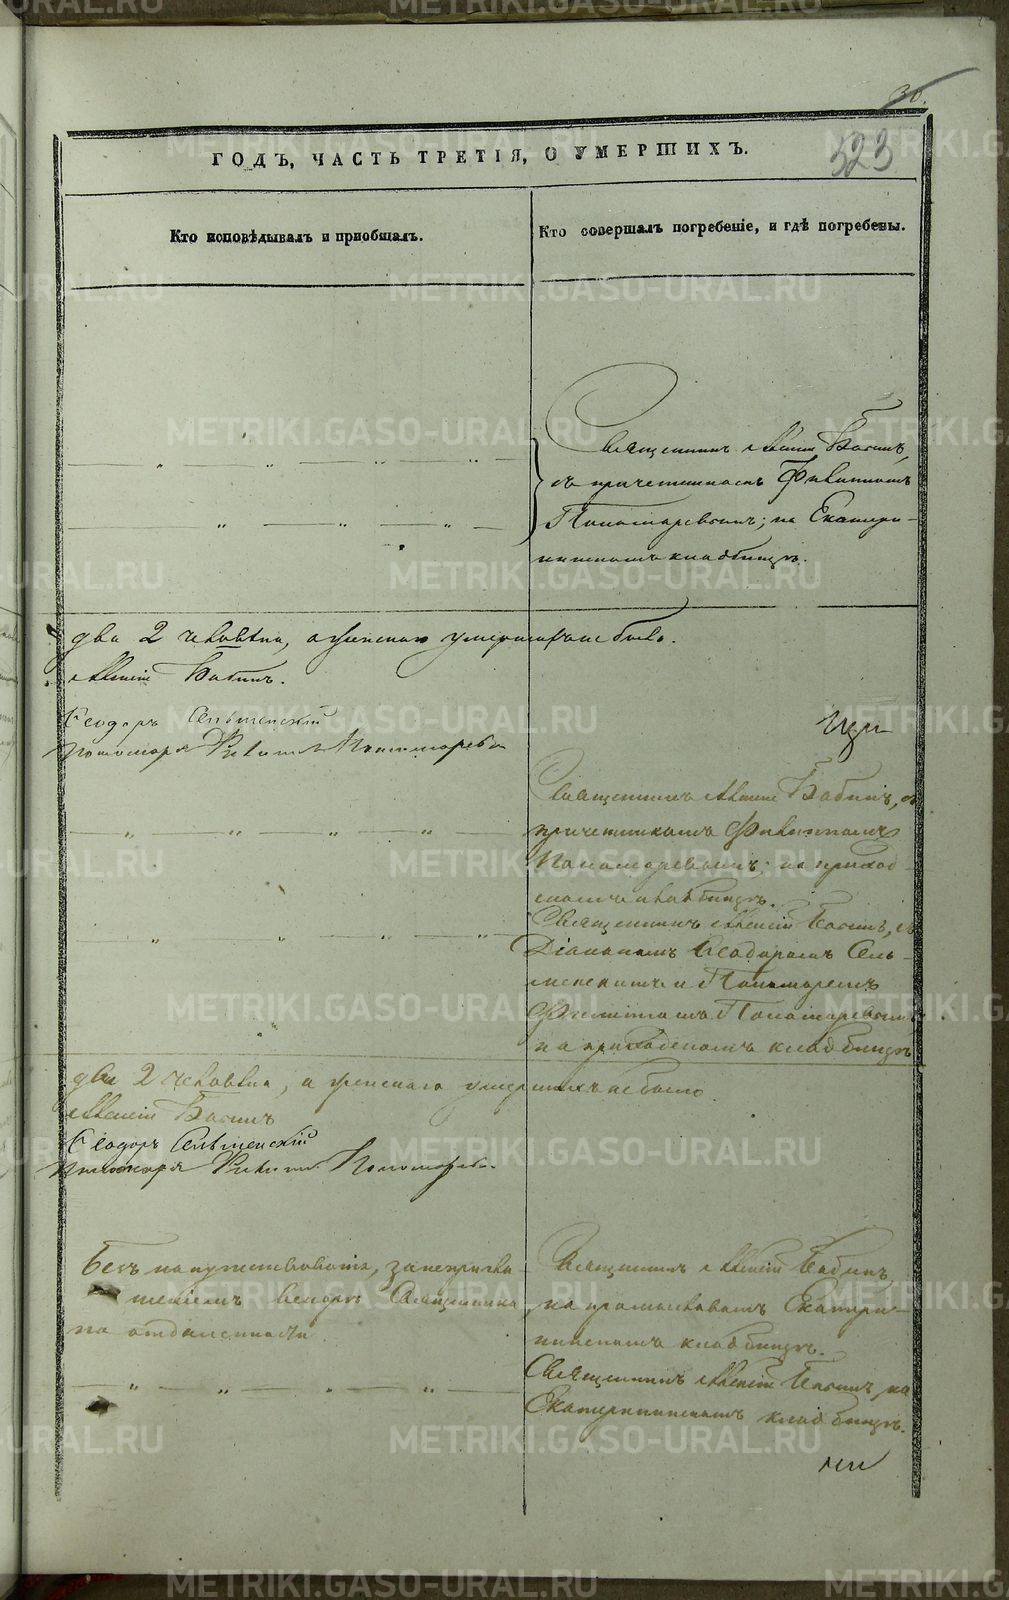 30.
323
ГОДЪ, ЧАСТЬ ТРЕТІЯ, О УМЕРШИХЪ.
Кто исповѣдывалъ и пріобщалъ.
Кто совершалъ погребеніе, и гдѣ погребены.
Священникъ Алексій Бабинъ,
съ причетникомъ Филиппомъ
Пономаревымъ; на Екатери-
нинскомъ кладбищѣ.
два 2 человѣка, а женскаго умершихъ не было.
Алексій Бабинъ.
Ѳеодоръ Сельменскій
Пономарь Филиппъ Пономаревъ
Священникъ Алексій Бабинъ, съ
причетникомъ Филиппомъ
Пономаревымъ; на приход-
скомъ кладбищѣ.
Священникъ Алексій Бабинъ, съ
Діакономъ Ѳеодоромъ Сель-
менскимъ и Пономаремъ
Филиппомъ Пономаревымъ
на приходскомъ кладбищѣ
два 2 человѣка, а женскаго умершихъ не было.
Алексій Бабинъ
Ѳеодоръ Сельменскій
Пономарь Филиппъ Пономаревъ.
Безъ напутствованія,
Священника
по отдаленности
Священникъ Алексій Бабинъ,
на Екатери-
нинскомъ кладбищѣ.
Священникъ Алексій Бабинъ, на
Екатерининскомъ кладбищѣ.
METRIKI.GASO-URAL.RU